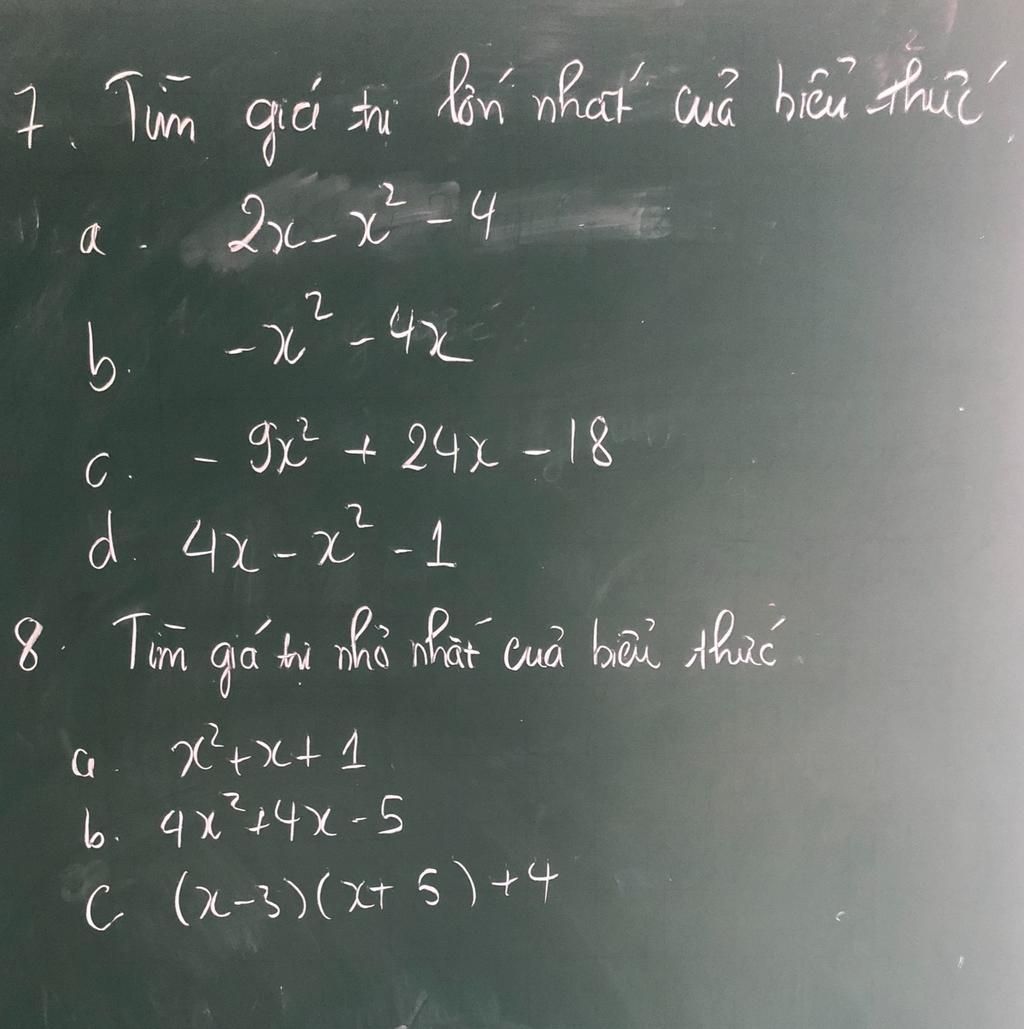 7. Tìm giá trị lớn nhất của biểu thức.
a. 2x - x² - 4
b. -x² - 4x
c. - 9x² + 24x - 18
d. 4x - x² - 1
8. Tìm giá trị nhỏ nhất của biểu thức.
a. x² + x + 1
b. 4x² + 4x - 5
c (x-3)(x+5)+4